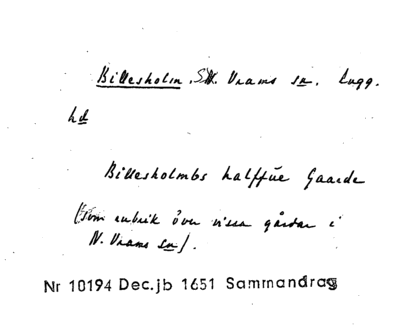 Billesholm, N. Vrams sn. Lugg.
hd
Billesholmbs halffūe Gaarde
(som rubrik över vissa gårdar i
N. Vrams sn).
Nr 10194 Dec.jb 1651 Sammandrag